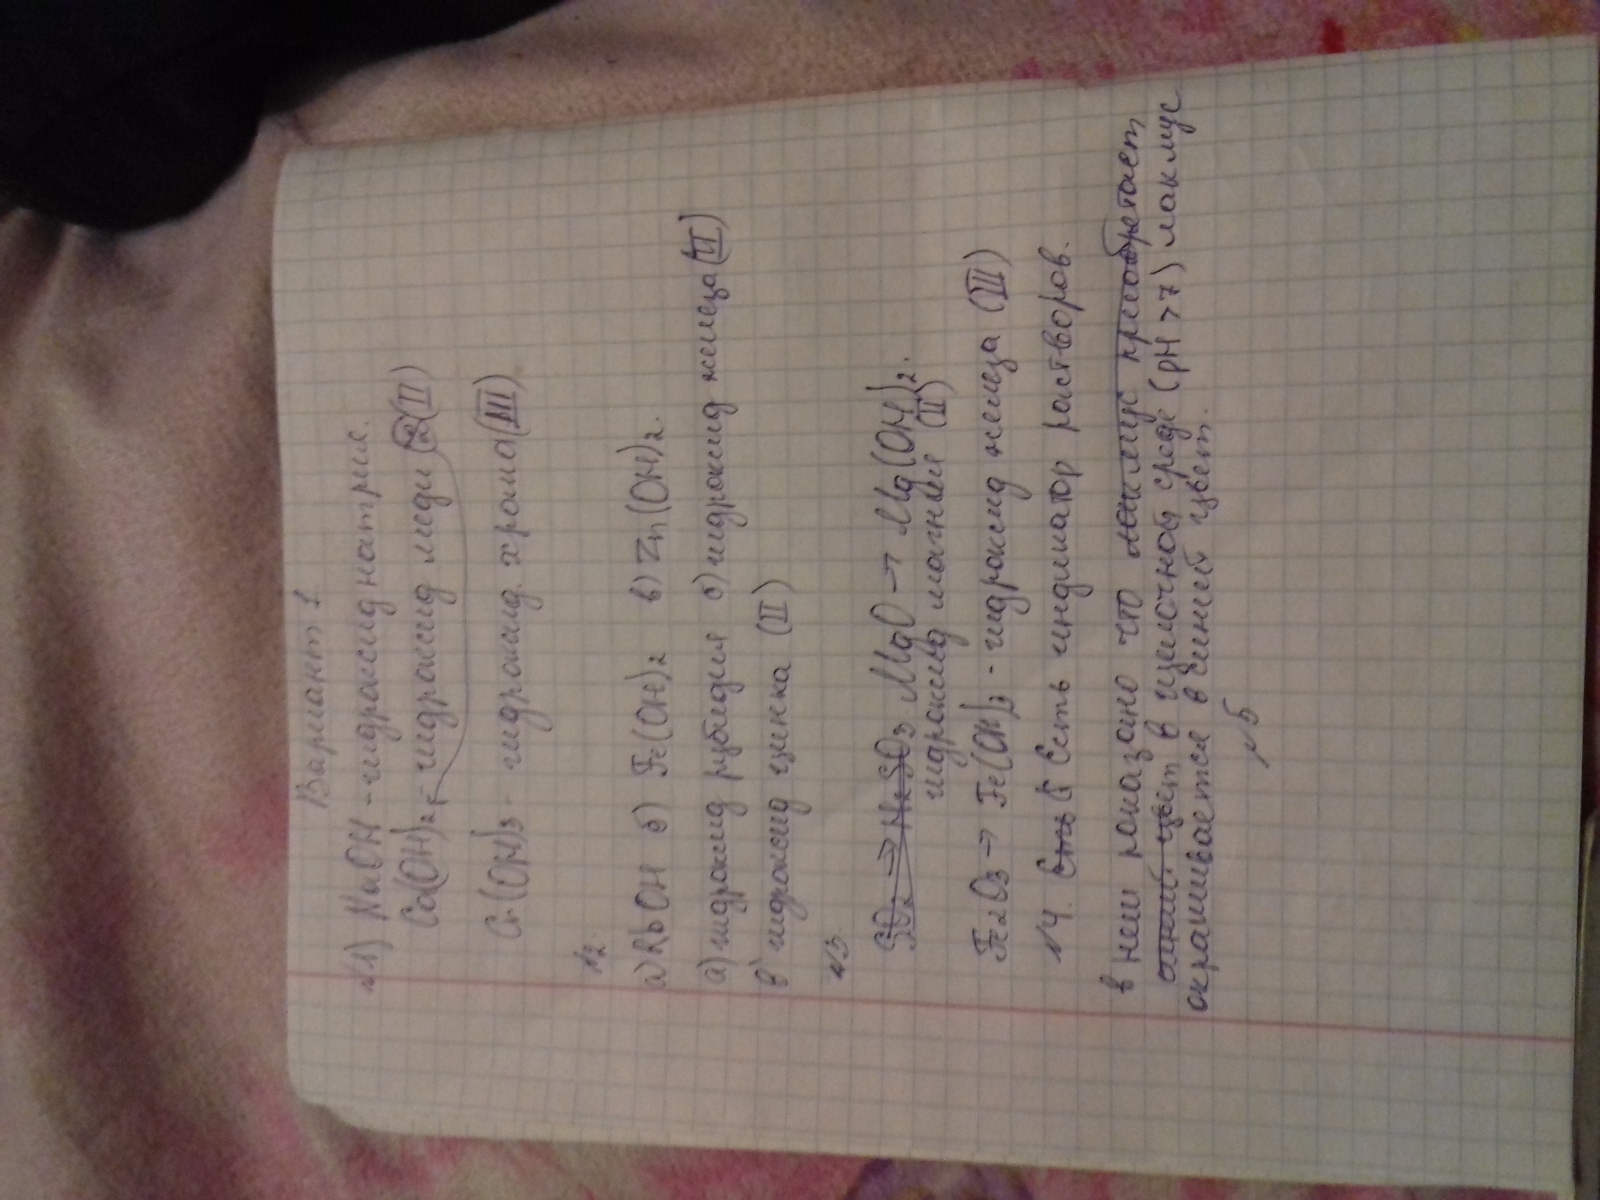 Вариант 1.
№1) NaOH - гидроксид натрия.
Ca(OH)2 - гидроксид меди (2)(II)
Cr(OH)3 - гидроксид хрома (III)
№2.
а) RbOH б) Fe(OH)2 в) Zn(OH)2.
а) гидроксид рубидия б) гидроксид железа (II)
в) гидроксид цинка (II)
№3.
SO2 → H2SO3 MgO → Mg(OH)2.
гидроксид магния (II)
Fe2O3 → Fe(OH)3 - гидроксид железа (III)
№4. Есть индикатор растворов.
в нем показано что лакмус приобретает
синий цвет в щелочной среде (pH > 7) лакмус
окрашивается в синий цвет.
№5